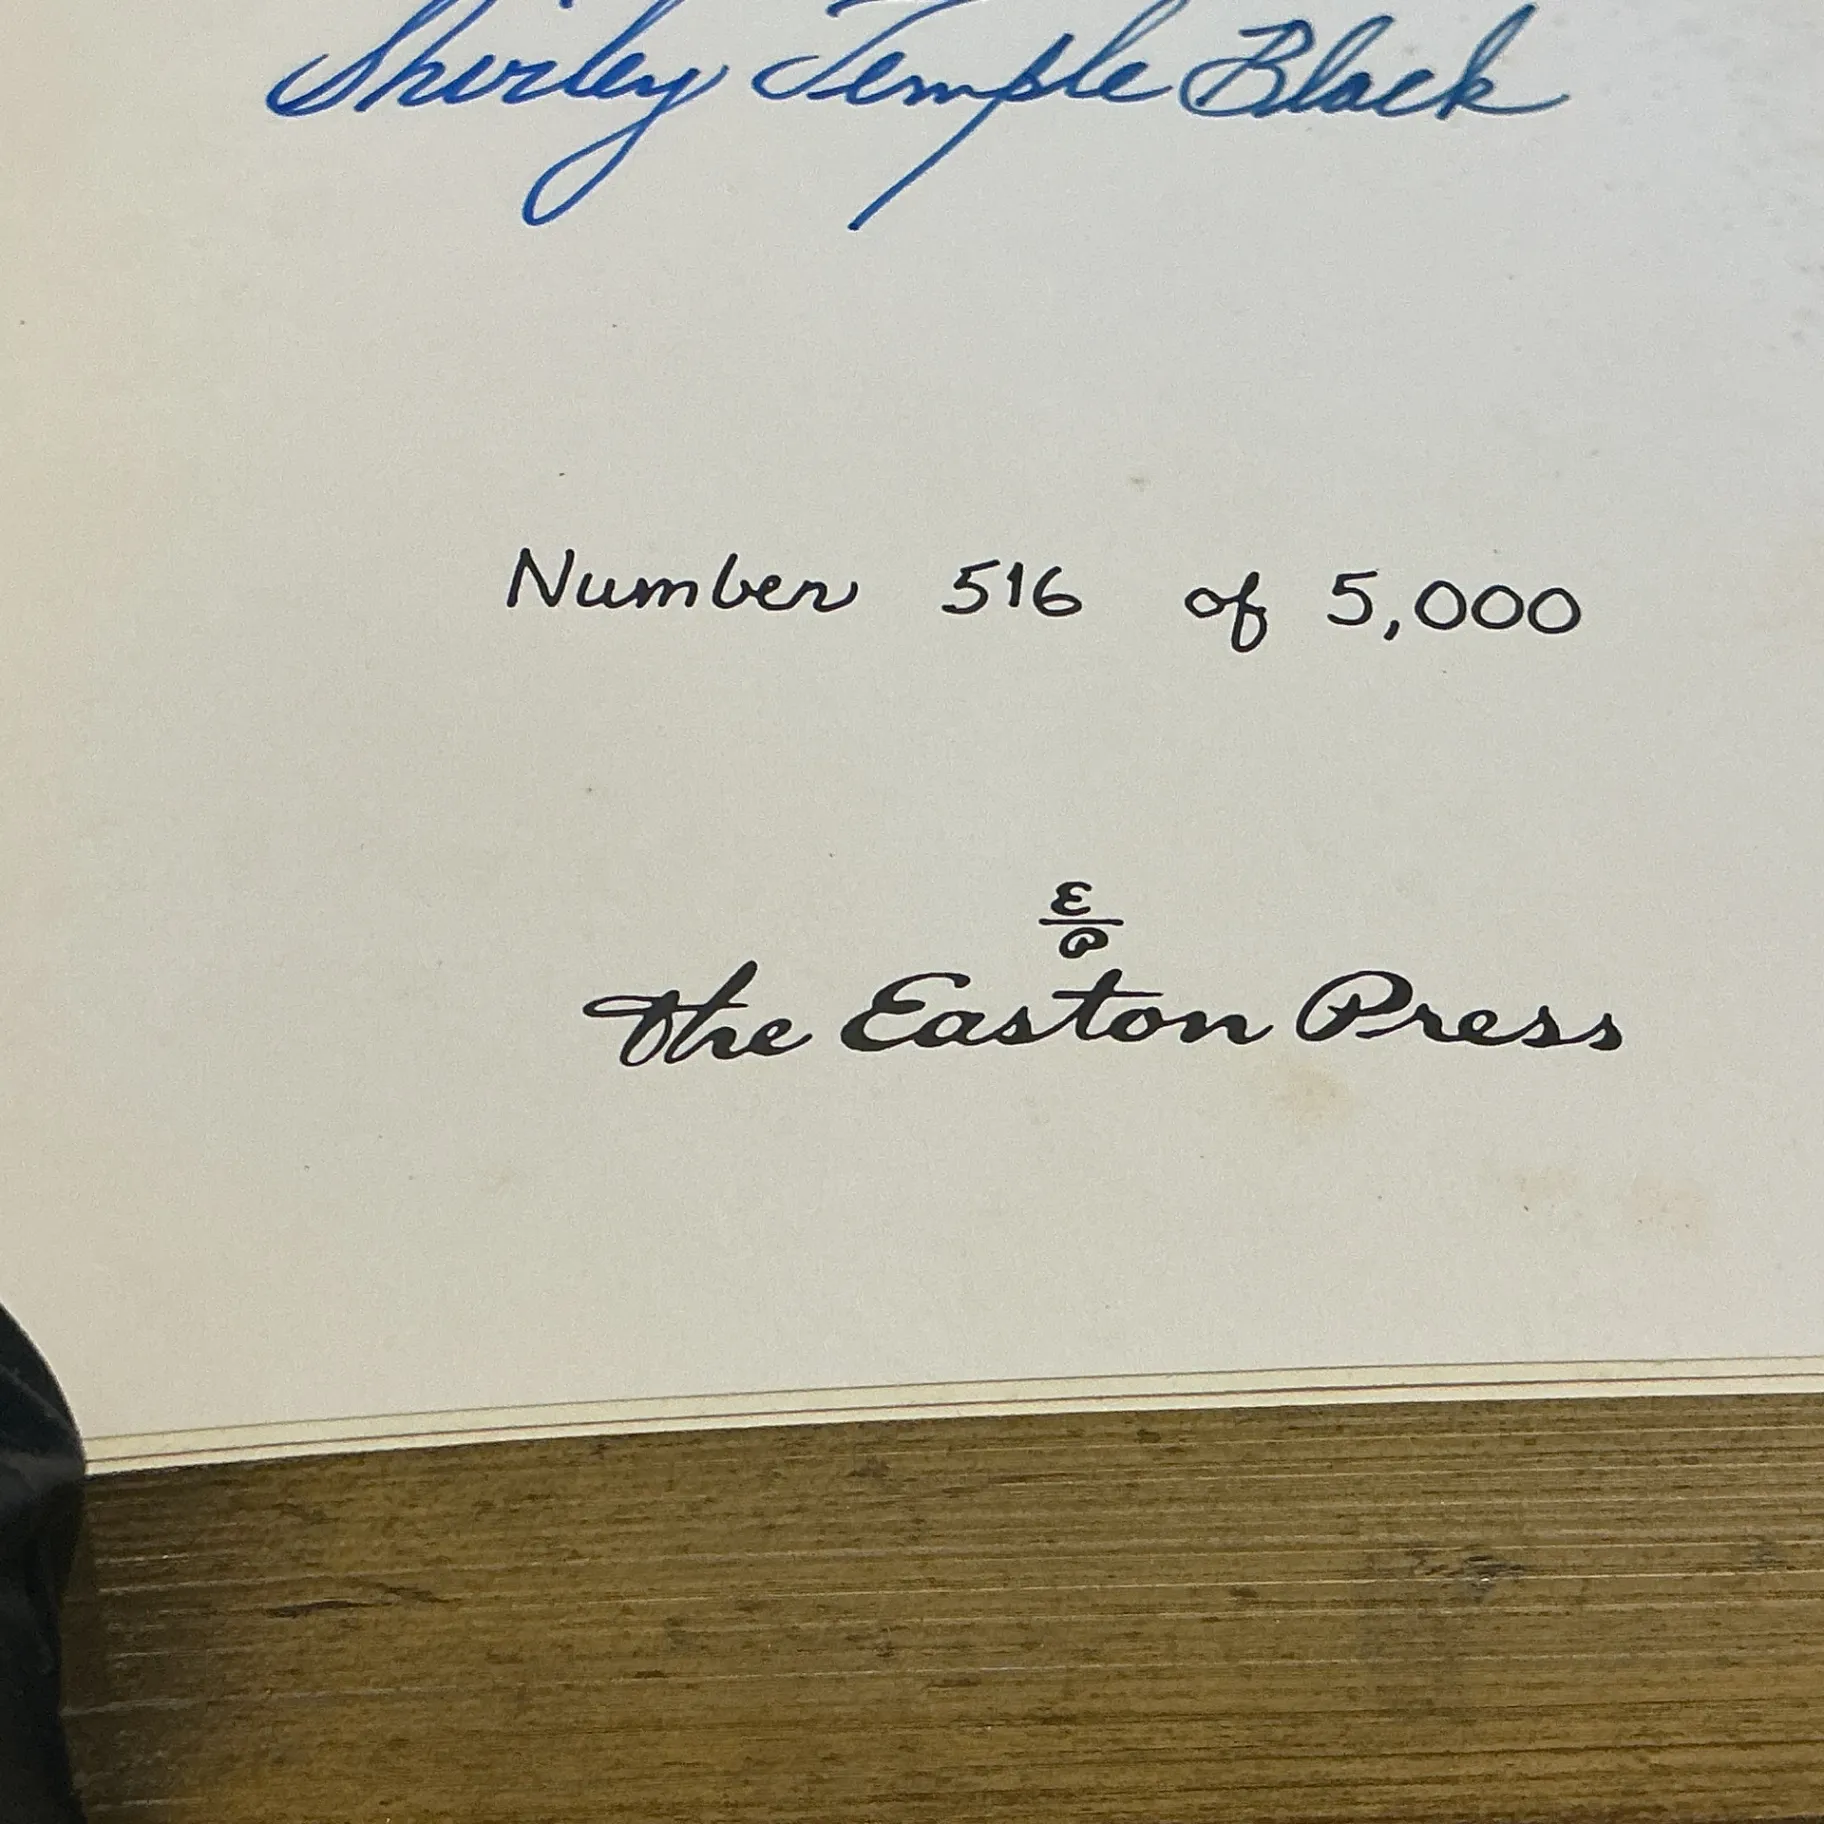 Shirley Temple Black
Number 516 of 5,000
E
P
The Easton Press